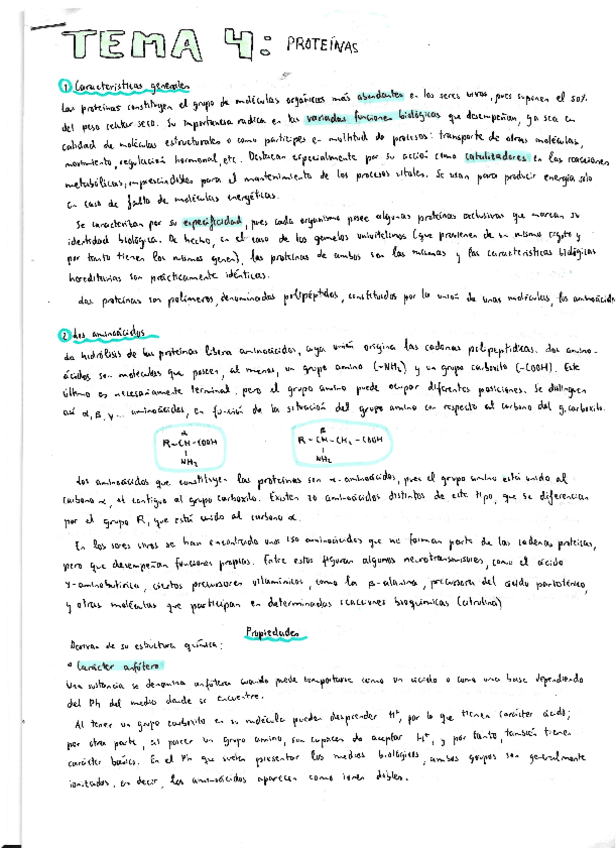 TEMA 4: PROTEÍNAS
1 Características generales
Las proteínas constituyen el grupo de moléculas orgánicas más abundantes en los seres vivos, pues suponen el 50%
del peso celular seco. Su importancia radica en las variadas funciones biológicas que desempeñan, ya sea en
calidad de moléculas estructurales o como partícipes en multitud de procesos: transporte de otras moléculas,
movimiento, regulación hormonal, etc. Destacan especialmente por su acción como catalizadores en las reacciones
metabólicas, imprescindibles para el mantenimiento de los procesos vitales. Se usan para producir energía solo
en caso de falta de moléculas energéticas.
Se caracterizan por su especificidad, pues cada organismo posee algunas proteínas exclusivas que marcan su
identidad biológica. De hecho, en el caso de los gemelos univitelinos (que provienen de un mismo cigoto y
por tanto tienen los mismos genes), las proteínas de ambos son las mismas y las características biológicas
hereditarias son prácticamente idénticas.
Las proteínas son polímeros, denominados polipéptidos, constituidos por la unión de unas moléculas, los aminoácidos
2 Los aminoácidos
La hidrólisis de las proteínas libera aminoácidos, cuya unión origina las cadenas polipeptídicas. Los amino-
ácidos son moléculas que poseen, al menos, un grupo amino (-NH2) y un grupo carboxilo (-COOH). Este
último es necesariamente terminal, pero el grupo amino puede ocupar diferentes posiciones. Se distinguen
así α, β, γ... aminoácidos, en función de la situación del grupo amino con respecto al carbono del g. carboxilo.
α
R-CH-COOH
NH2
β
R-CH-CH2-COOH
NH2
Los aminoácidos que constituyen las proteínas son α-aminoácidos, pues el grupo amino está unido al
carbono α, el contiguo al grupo carboxilo. Existen 20 aminoácidos distintos de este tipo, que se diferencian
por el grupo R, que está unido al carbono α.
En los seres vivos se han encontrado unos 150 aminoácidos que no forman parte de las cadenas proteicas,
pero que desempeñan funciones propias. Entre estos figuran algunos neurotransmisores, como el ácido
γ-aminobutírico, ciertos precursores vitamínicos, como la β-alanina, precursora del ácido pantoténico,
y otras moléculas que participan en determinadas reacciones bioquímicas (citrulina)
Propiedades
Derivan de su estructura química:
Carácter anfótero
Una sustancia se denomina anfótera cuando puede comportarse como un ácido o como una base dependiendo
del Ph del medio donde se encuentre.
Al tener un grupo carboxilo en su molécula pueden desprender H+, por lo que tienen carácter ácido;
por otra parte, al poseer un grupo amino, son capaces de aceptar H+, y por tanto, también tienen
carácter básico. En el Ph que suelen presentar los medios biológicos, ambos grupos son generalmente
ionizados, es decir, los aminoácidos aparecen como iones dobles.